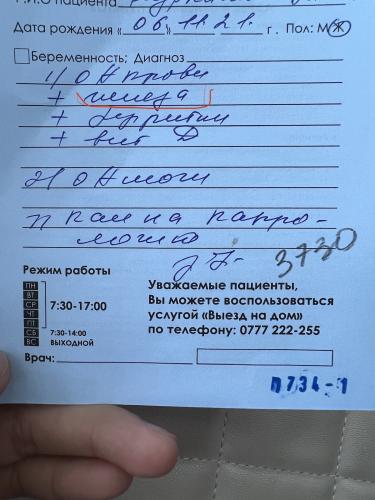 Ф.И.О пациента
Дата рождения «06» 11 21 г. Пол: М Ж
Беременность; Диагноз
1) ОА крови
+ железа
+ ферритин
+ вит Д
2) ОА мочи
кал на копро-
логию
3730
Режим работы
ПН
ВТ
СР 7:30-17:00
ЧТ
ПТ
СБ 7:30-14:00
ВС ВЫХОДНОЙ
Уважаемые пациенты,
Вы можете воспользоваться
услугой «Выезд на дом»
по телефону: 0777 222-255
Врач:
П734-1